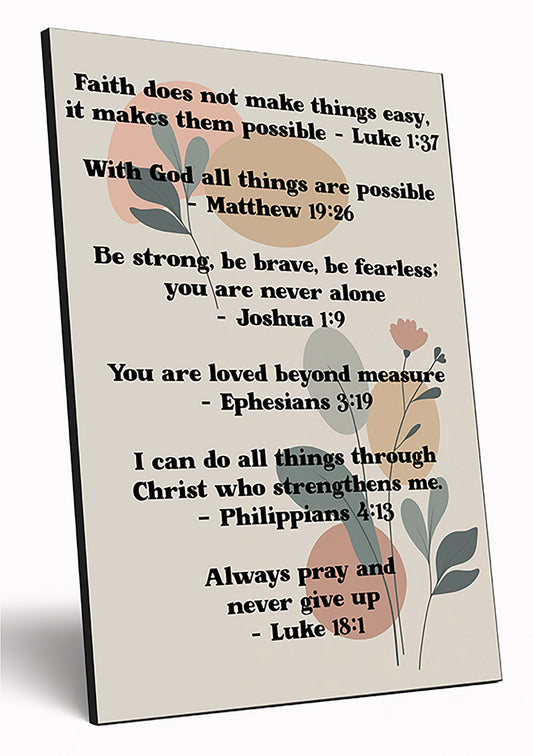 Faith does not make things easy,
it makes them possible - Luke 1:37
With God all things are possible
- Matthew 19:26
Be strong, be brave, be fearless;
you are never alone
- Joshua 1:9
You are loved beyond measure
- Ephesians 3:19
I can do all things through
Christ who strengthens me.
- Philippians 4:13
Always pray and
never give up
- Luke 18:1